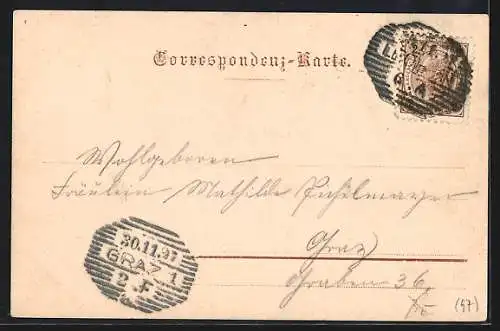 Correspondenz-Karte.
Wohlgeboren
Fräulein Mathilde Pichelmayer
Graz
Graben 36.
30.11.97
GRAZ 1
2. F
(97)